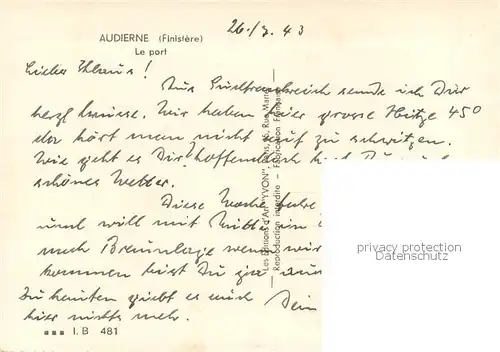 26./7. 43
AUDIERNE (Finistère)
Le port
Lieber Klaus!
Aus Südfrankreich sende ich Dir
herzl. Grüsse. Wir haben hier grosse Hitze 45°
da hört man nicht auf zu schwitzen.
Wie geht es Dir hoffentlich hast Du
schönes Wetter.
Diese Woche fahre
und will mit
nach Braunlage wenn wir
kommen bist Du ja
Zu kaufen giebt es auch Dein
hier nichts mehr.
Les Editions d'Art "YVON", Paris, 15, Rue Martel
Reproduction interdite - Fabrication Française
privacy protection
Datenschutz
I.B 481